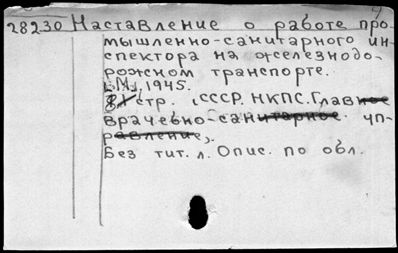 28230 Наставление о работе про-
мышленно-санитарного ин-
спектора на железнодо-
рожном транспорте.
[М.], 1945.
стр. (СССР. НКПС. Главное
врачебно-санитарное уп-
равление).
Без тит. л. Опис. по обл.